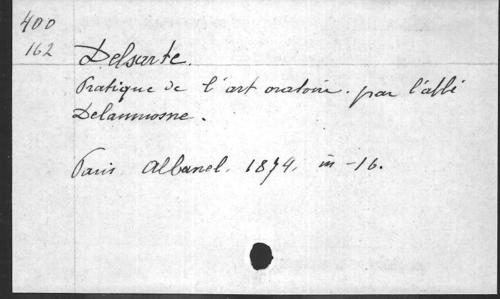 400
162
Delsarte.
Pratique de l'art oratoire. par l'abbé
Delaumosne.
Paris. Albanel. 1874. in-16.